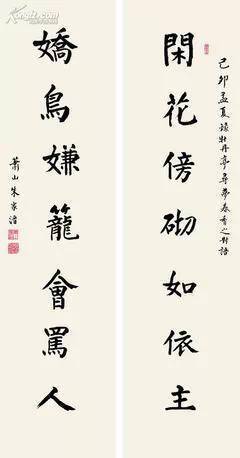 閑花傍砌如依主
己卯孟夏錄牡丹亭尋夢春香之對語
嬌鳥嫌籠會罵人
蕭山朱家濟